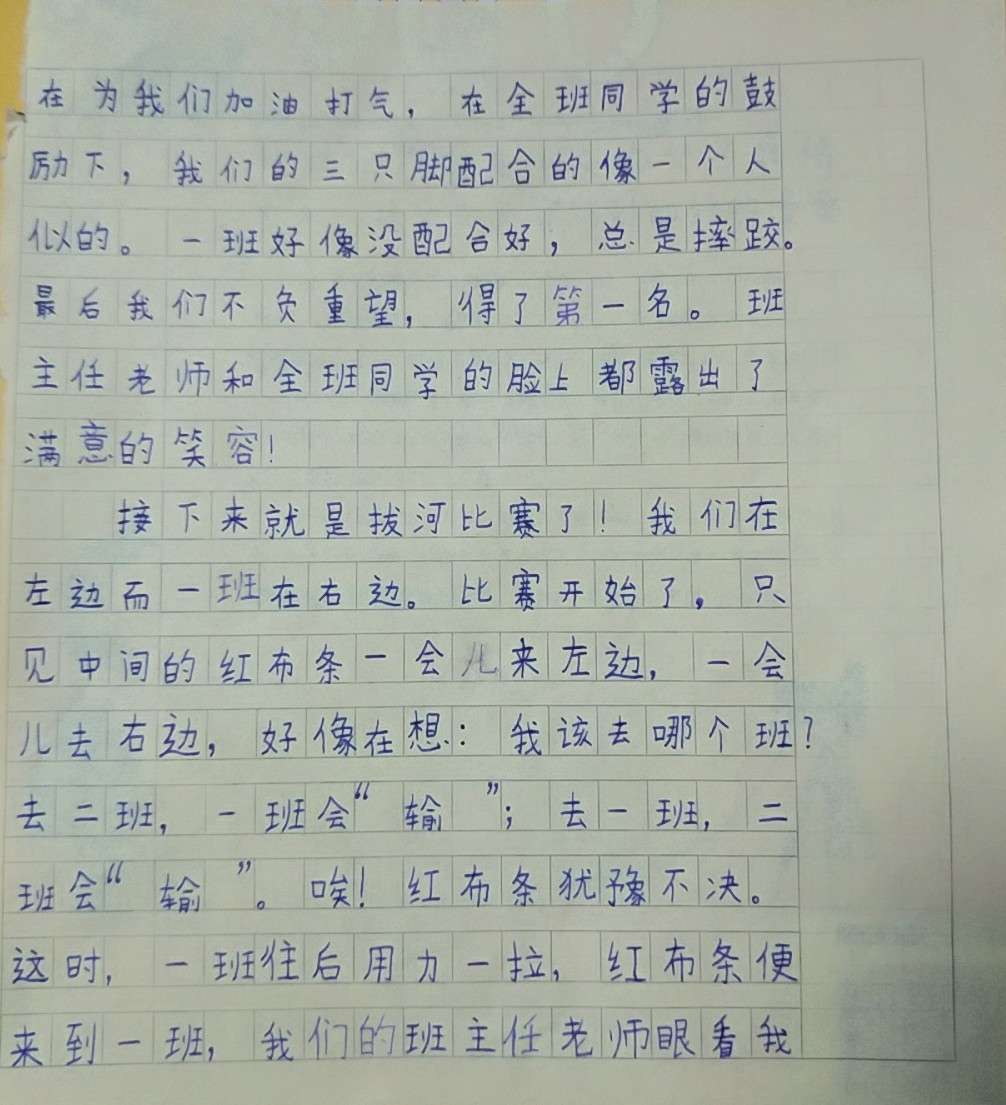 在为我们加油打气，在全班同学的鼓
励下，我们的三只脚配合的像一个人
似的。一班好像没配合好，总是摔跤。
最后我们不负重望，得了第一名。班
主任老师和全班同学的脸上都露出了
满意的笑容！
接下来就是拔河比赛了！我们在
左边而一班在右边。比赛开始了，只
见中间的红布条一会儿来左边，一会
儿去右边，好像在想：我该去哪个班？
去二班，一班会“输”；去一班，二
班会“输”。唉！红布条犹豫不决。
这时，一班往后用力一拉，红布条便
来到一班，我们的班主任老师眼看我